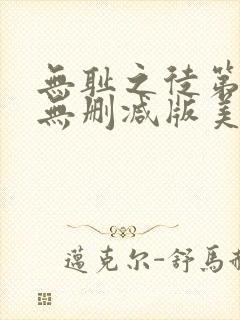 無耻之徒第
無删减版美
邁克尔-舒馬赫